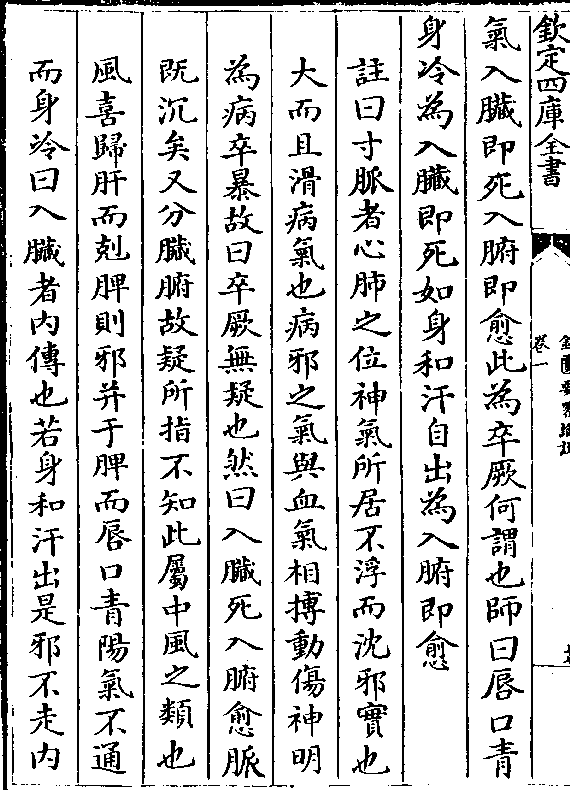 欽定四庫全書
卷一
氣入臟即死入腑即愈此為卒厥何謂也師曰唇口青
身冷為入臟即死如身和汗自出為入腑即愈
註曰寸脈者心肺之位神氣所居不浮而沈邪實也
大而且滑病氣也病邪之氣與血氣相搏動傷神明
為病卒暴故曰卒厥無疑也然曰入臟死入腑愈脈
既沉矣又分臟腑故疑所指不知此屬中風之類也
風喜歸肝而剋脾則邪并于脾而唇口青陽氣不通
而身冷曰入臟者內傳也若身和汗出是邪不走內